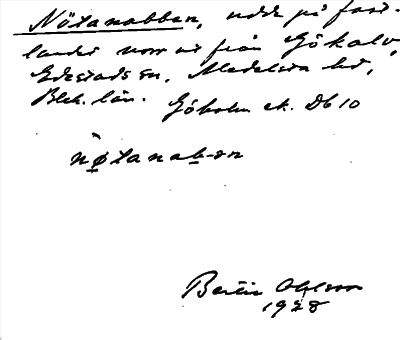 Nötanabben, udde på fast-
landet norr ut från Gökalv,
Edestads sn, Medelsta hd,
Blek. län. Göholm ek. Db 10
nøtanab-ən
Bertil Ohlson
1928